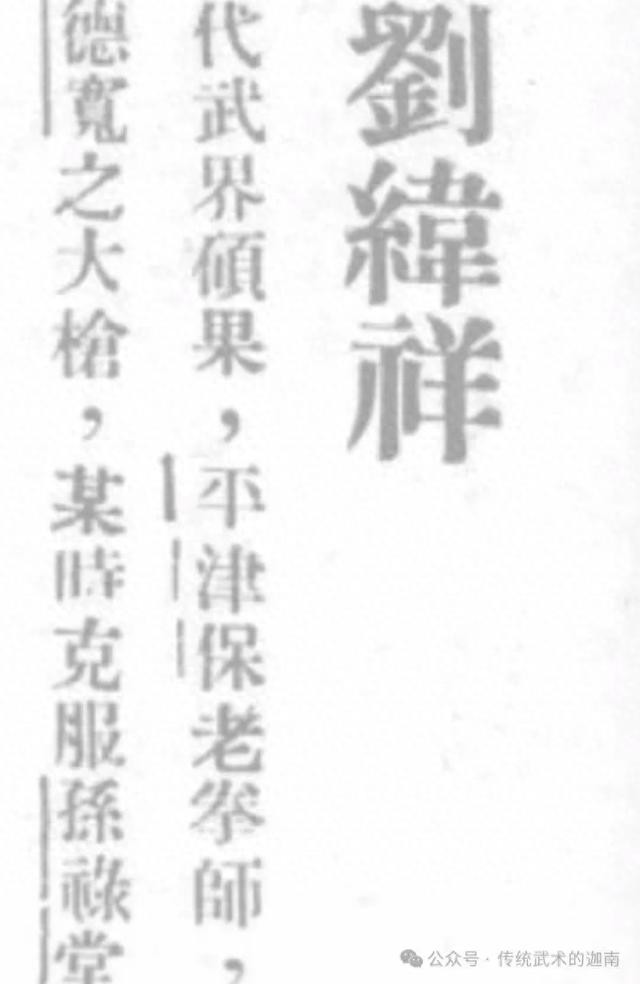 劉緯祥
代武界碩果，平津保老拳師，
德寬之大槍，某時克服孫祿堂
公众号·传统武术的迦南